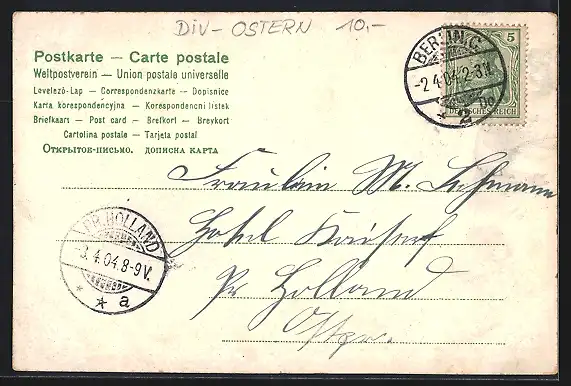 DIV- OSTERN 10.-
Postkarte — Carte postale
Weltpostverein — Union postale universelle
Levelező-Lap — Correspondenzkarte — Dopisnice
Karta korespondencyjna — Korespondenční lístek
Briefkaart — Post card — Brefkort — Brevkort
Cartolina postale — Tarjeta postal
Открытое-письмо. дописна карта
5
DEUTSCHES REICH
BERLIN C.
-2.4.04.2-3N.
* 2
Fräulein M. Lehmann
Hotel Kaiserhof
Pr Holland
Ostpr.
PR. HOLLAND
3.4.04.8-9V.
* * a